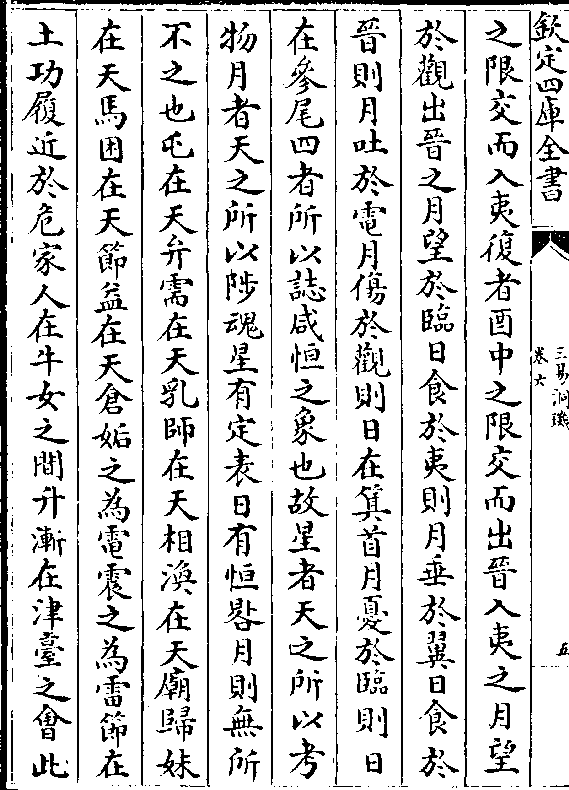 欽定四庫全書
三易洞璣
卷六
五
之限交而入夷復者酉中之限交而出晉入夷之月望
於觀出晉之月望於臨日食於夷則月垂於翼日食於
晉則月吐於電月傷於觀則日在箕首月憂於臨則日
在參尾四者所以誌咸恒之象也故星者天之所以考
物月者天之所以陟魂星有定表日有恒晷月則無所
不之也屯在天弁需在天乳師在天相渙在天廟歸妹
在天馬困在天節益在天倉姤之為電震之為雷節在
土功履近於危家人在牛女之間升漸在津臺之會此